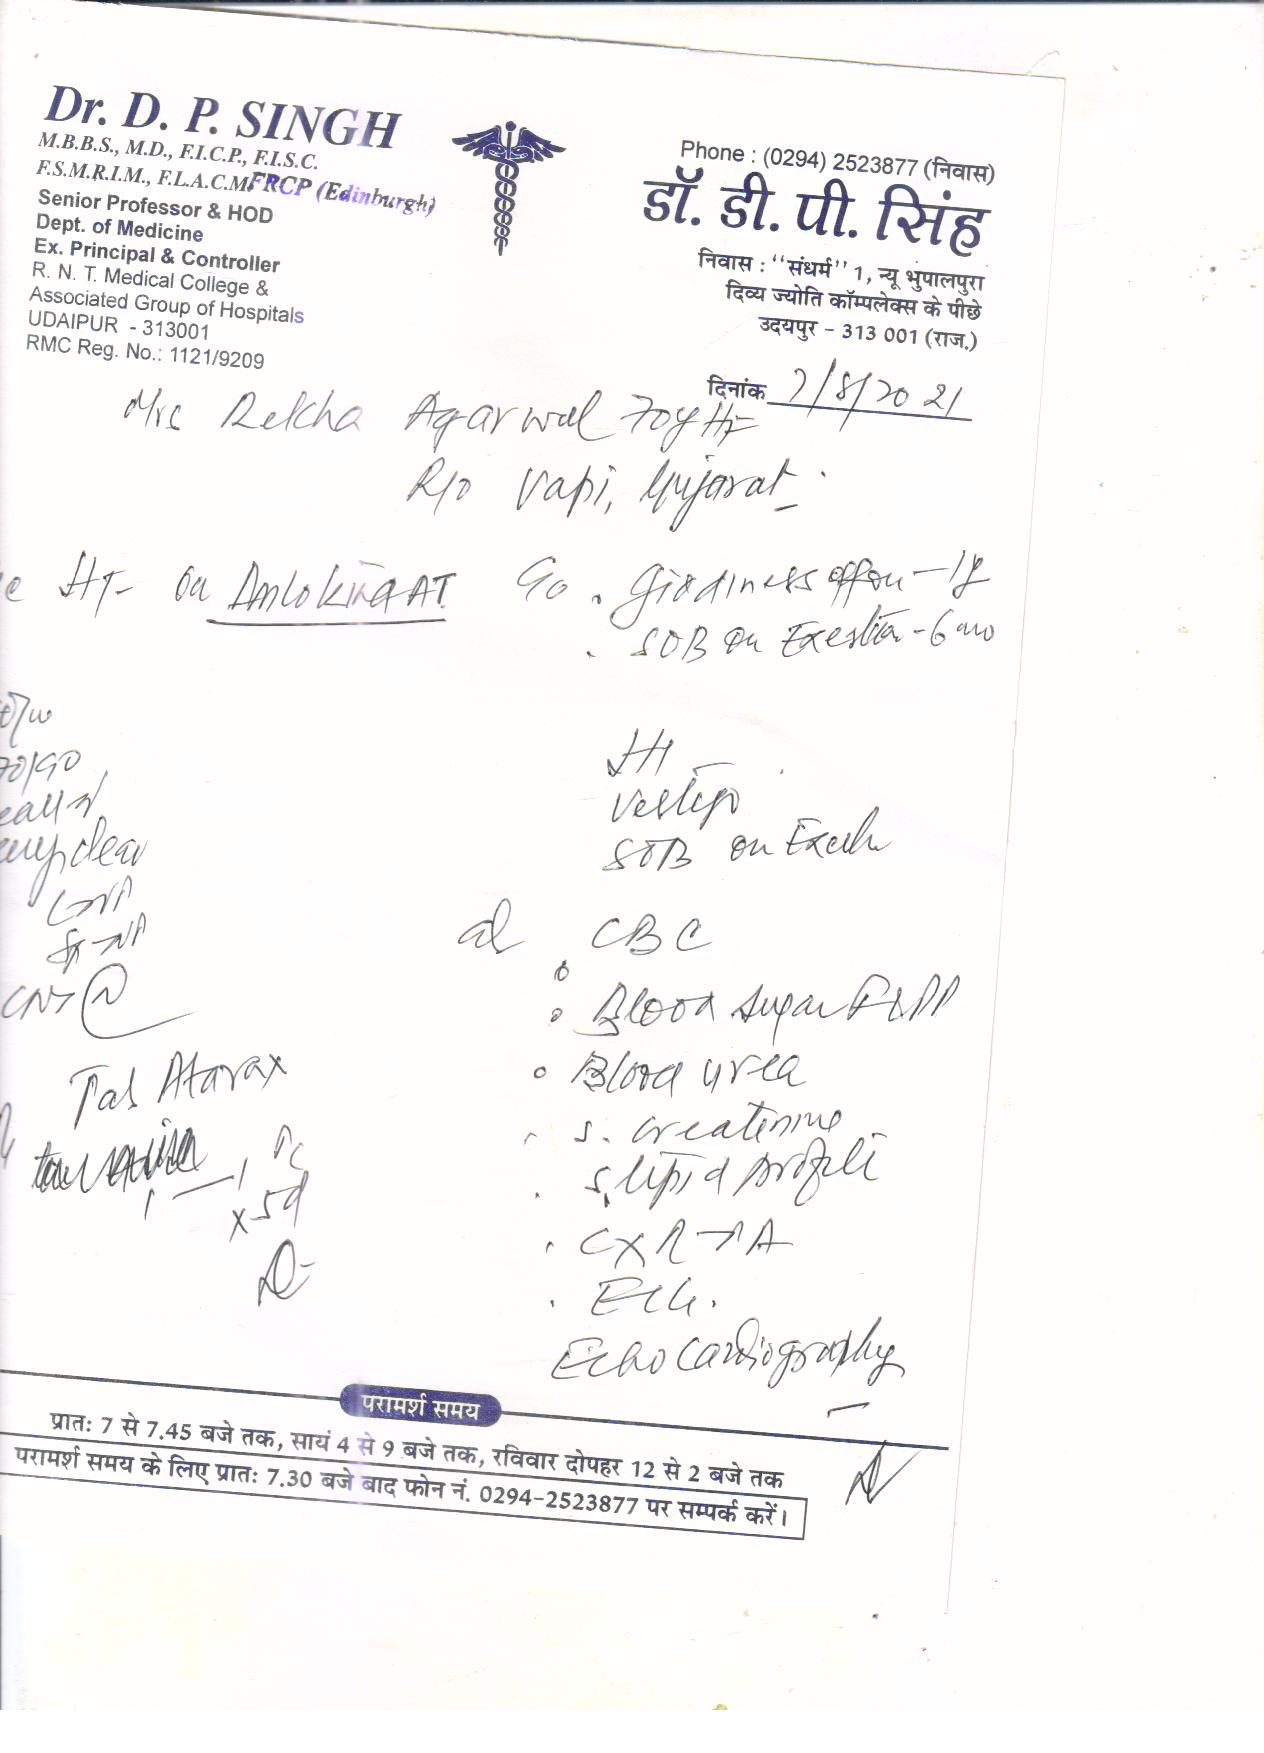 Dr. D. P. SINGH
M.B.B.S., M.D., F.I.C.P., F.I.S.C.
F.S.M.R.I.M., F.I.A.C.M. FRCP (Edinburgh)
Senior Professor & HOD
Dept. of Medicine
Ex. Principal & Controller
R. N. T. Medical College &
Associated Group of Hospitals
UDAIPUR - 313001
RMC Reg. No.: 1121/9209
Phone : (0294) 2523877 (निवास)
डॉ. डी. पी. सिंह
निवास : "संधर्म" 1, न्यू भुपालपुरा
दिव्य ज्योति कॉम्पलेक्स के पीछे
उदयपुर - 313 001 (राज.)
दिनांक 7/8/2021
Mrs Rekha Agarwal 70y
R/o Vapi, Gujarat
HT on Amlokind AT C/o . giddiness off/on - 1y
. SOB on Exertion - 6 mo
70/90
clear
CNS (N)
Tab Atarax
x 5d
HT
Vertigo
SOB on
CBC
Blood sugar F & PP
Blood urea
S. creatinine
S. lipid profile
CXR → PA
ECG.
Echo cardiography
परामर्श समय
प्रातः 7 से 7.45 बजे तक, सायं 4 से 9 बजे तक, रविवार दोपहर 12 से 2 बजे तक
परामर्श समय के लिए प्रातः 7.30 बजे बाद फोन नं. 0294-2523877 पर सम्पर्क करें।